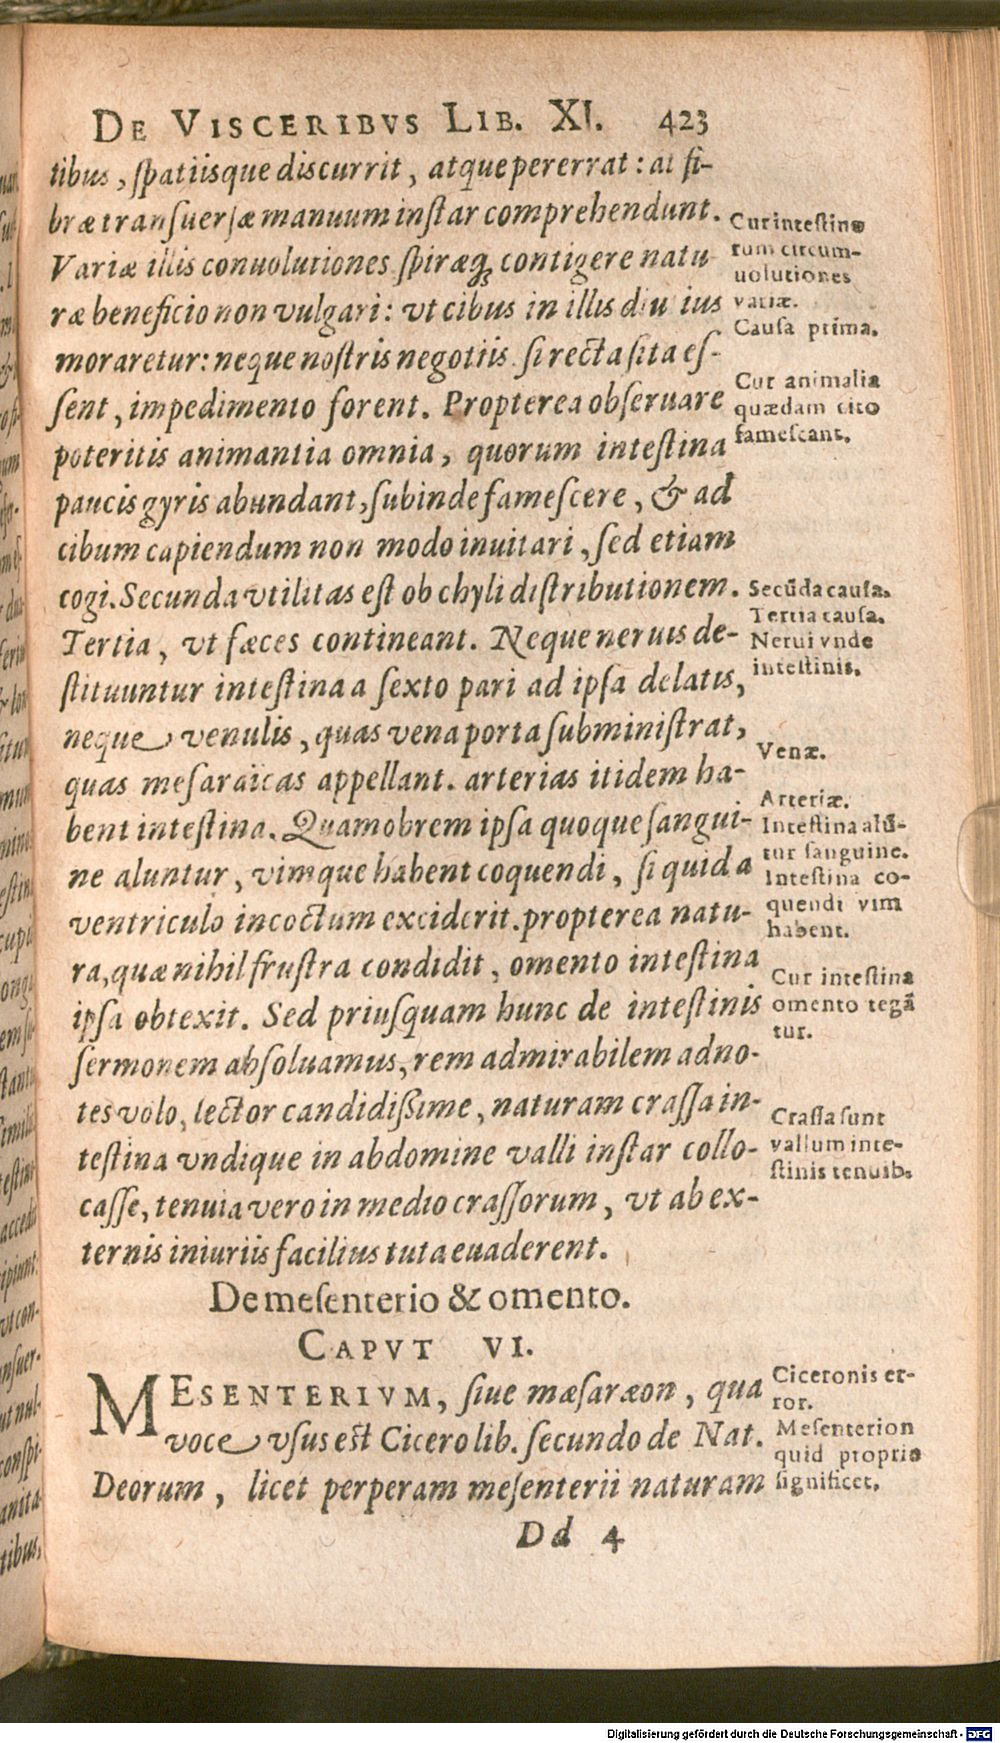 DE VISCERIBVS LIB. XI. 423
tibus, spatiisque discurrit, atque pererrat: at fi-
bræ transuersæ manuum instar comprehendunt.
Variæ illis conuolutiones spiræq́; contigere natu-
ræ beneficio non vulgari: vt cibus in illis diutius
moraretur: neque nostris negotiis si recta sita es-
sent, impedimento forent. Propterea obseruare
poteritis animantia omnia, quorum intestina
paucis gyris abundant, subinde famescere, & ad
cibum capiendum non modo inuitari, sed etiam
cogi. Secunda vtilitas est ob chyli distributionem.
Tertia, vt fæces contineant. Neque neruis de-
stituuntur intestina a sexto pari ad ipsa delatis,
neque venulis, quas vena porta subministrat,
quas mesaraicas appellant. arterias itidem ha-
bent intestina. Quamobrem ipsa quoque sangui-
ne aluntur, vimque habent coquendi, si quid a
ventriculo incoctum exciderit. propterea natu-
ra, quæ nihil frustra condidit, omento intestina
ipsa obtexit. Sed priusquam hunc de intestinis
sermonem absoluamus, rem admirabilem adno-
tes volo, lector candidissime, naturam crassa in-
testina vndique in abdomine valli instar collo-
casse, tenuia vero in medio crassorum, vt ab ex-
ternis iniuriis facilius tuta euaderent.
De mesenterio & omento.
CAPVT VI.
MESENTERIVM, siue mæsaræon, qua
voce vsus est Cicero lib. secundo de Nat.
Deorum, licet perperam mesenterii naturam
Dd 4
Cur intestino
rum circum-
uolutiones
variæ.
Causa prima.
Cur animalia
quædam cito
famescant.
Secūda causa.
Tertia causa.
Nerui vnde
intestinis.
Venæ.
Arteriæ.
Intestina alū-
tur sanguine.
Intestina co-
quendi vim
habent.
Cur intestina
omento tegā
tur.
Crassa sunt
vallum inte-
stinis tenuib.
Ciceronis er-
ror.
Mesenterion
quid proprie
significet.
Digitalisierung gefördert durch die Deutsche Forschungsgemeinschaft - DFG